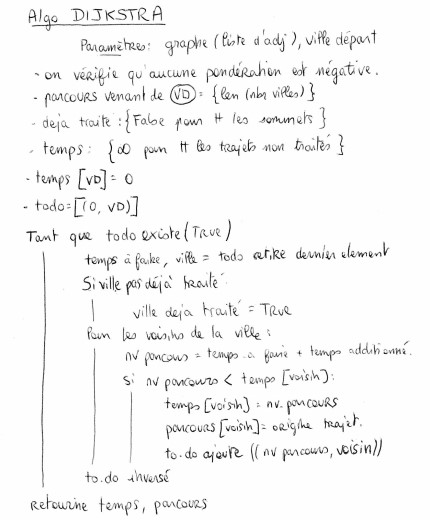 Algo DIJKSTRA
Paramètres: graphe (liste d'adj), ville départ
- on vérifie qu'aucune pondération est négative.
- parcours venant de VD = {len (nbr villes)}
- deja traité : {False pour tt les sommets}
- temps : {∞ pour tt les trajets non traités}
- temps [VD] = 0
- todo = [(0, VD)]
Tant que todo existe (True)
temps à faire, ville = todo retire dernier element
Si ville pas déjà traité:
ville deja traité = TRUE
Pour les voisins de la ville :
nv parcours = temps a faire + temps additionné.
si nv parcours < temps [voisin] :
temps [voisin] = nv. parcours
parcours [voisin] = origine trajet.
to.do ajoute ((nv parcours, voisin))
to.do inversé
Retourne temps, parcours